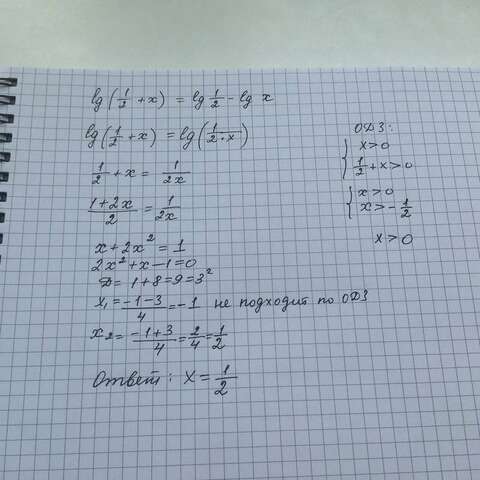 lg(1/2 + x) = lg 1/2 - lg x
lg(1/2 + x) = lg(1/(2·x))
1/2 + x = 1/2x
(1+2x)/2 = 1/2x
x + 2x² = 1
2x² + x - 1 = 0
D = 1+8=9=3²
x₁ = (-1-3)/4 = -1 не подходит по ОДЗ
x₂ = (-1+3)/4 = 2/4 = 1/2
Ответ: x = 1/2
ОДЗ:
{ x>0
1/2 + x>0
{ x>0
x>-1/2
x>0